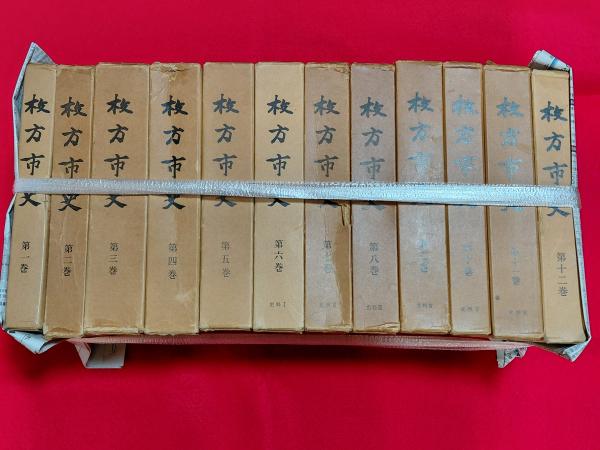 枚方市史
第一巻
枚方市史
第二巻
枚方市史
第三巻
枚方市史
第四巻
枚方市史
第五巻
枚方市史
第六巻
史料I
枚方市史
第七巻
枚方市史
第八巻
枚方市史
枚方市史
枚方市史
枚方市史
第十二巻